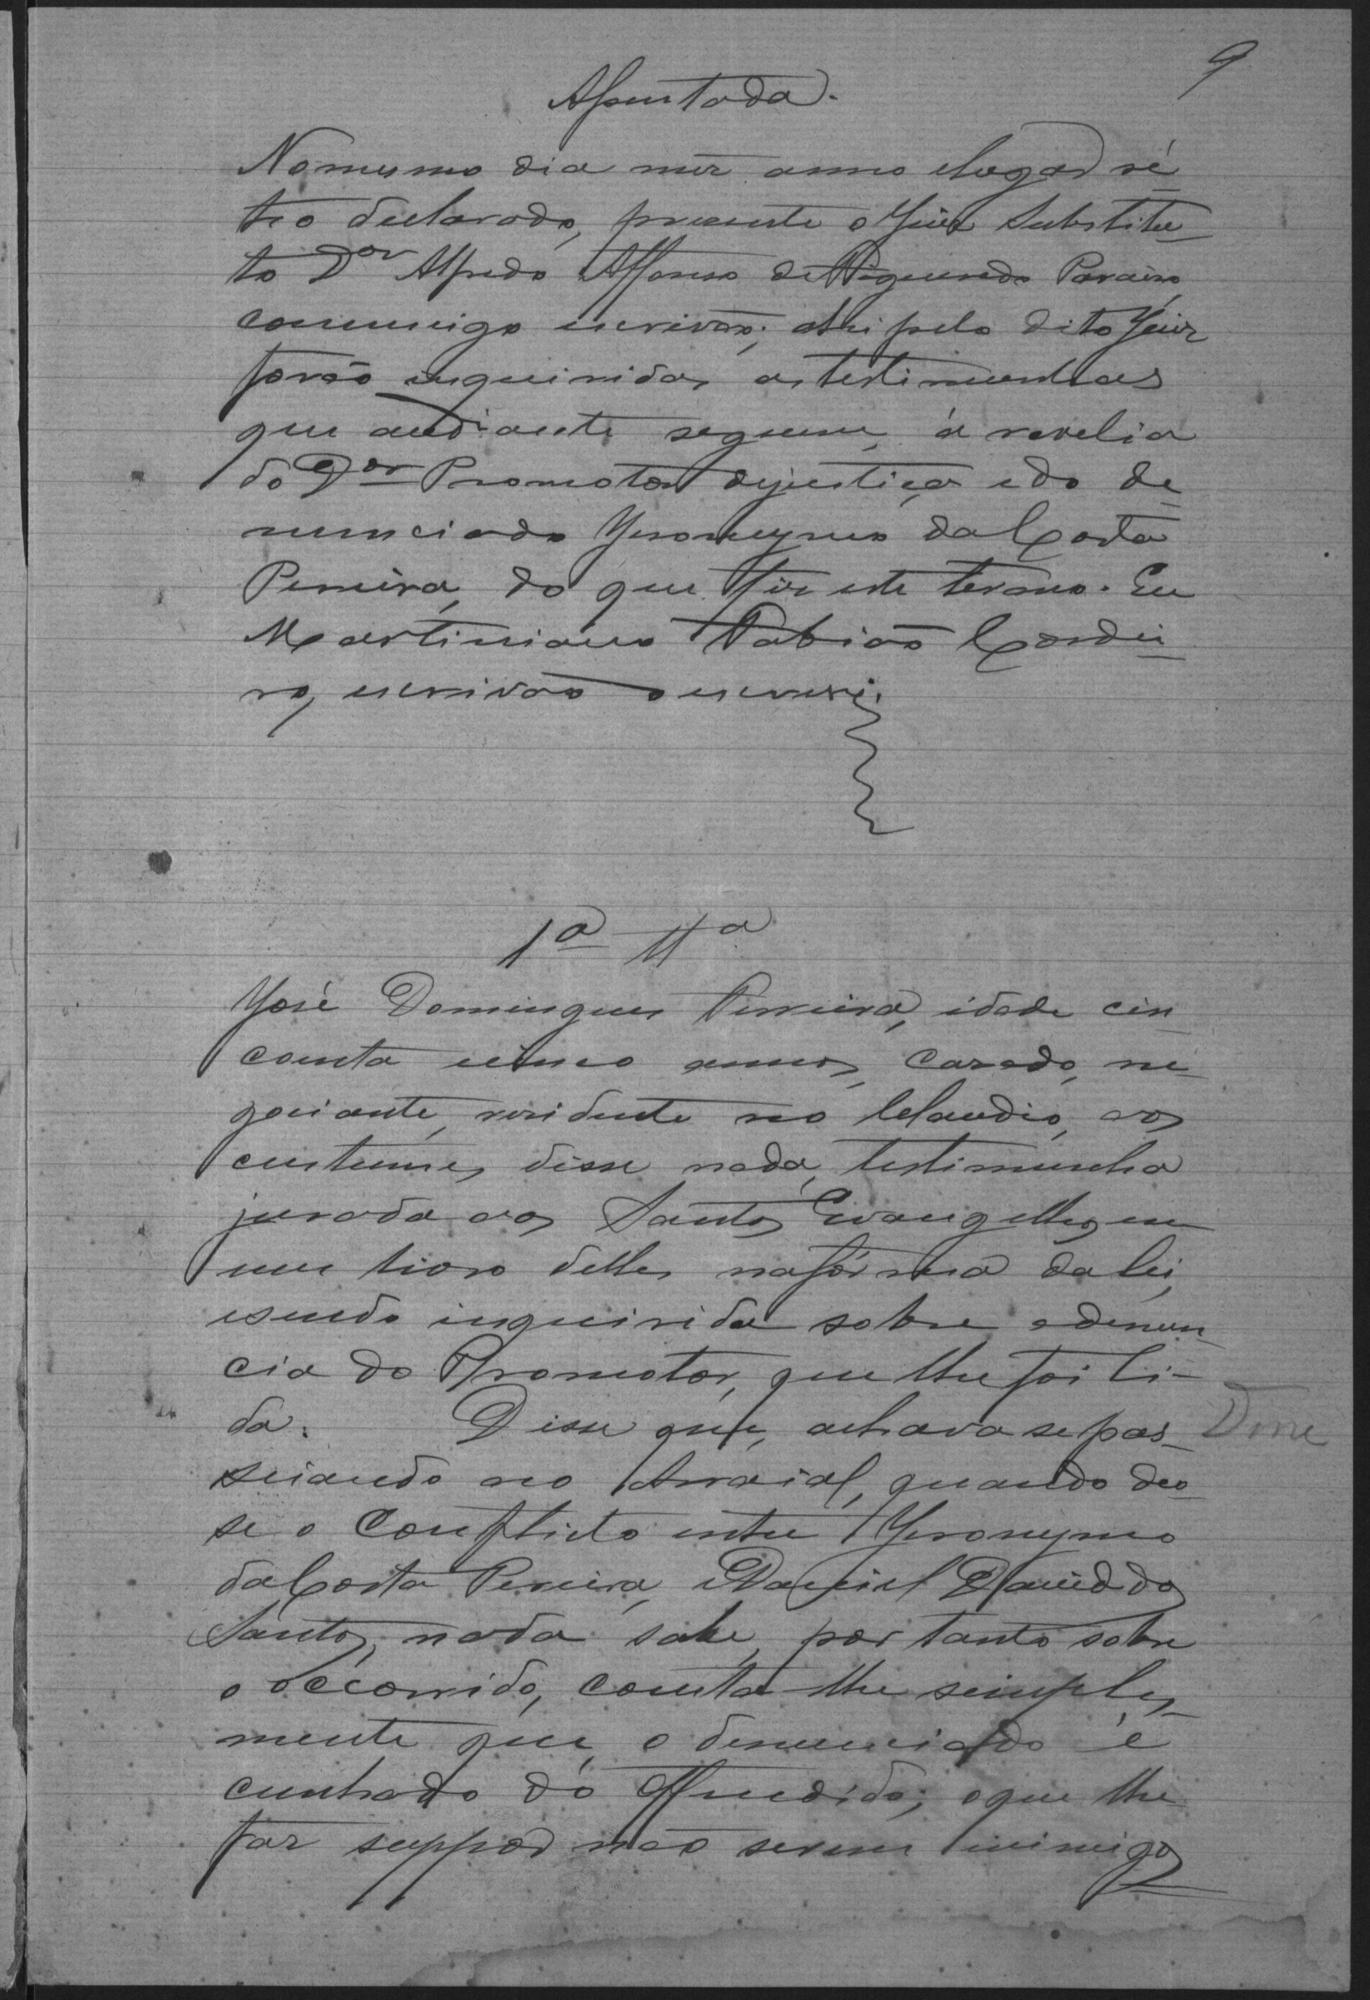 9
Assentada.
No mesmo dia mez anno elugar ré
tro declarado, presente o Juiz Substitu
to Dor Alfredo Affonso de Figueredo Paraiso,
commigo escrivão; ahi pelo dito Juiz
forão inquiridas as testimunhas
que aodiante seguem, á revelia
do Dor Promotor dejustiça edo de
nunciado Jeronymo da Costa
Pereira, do que fiz este termo. Eu
Martiniano Fabião Cordei
ro, escrivão o escrevi.
1ª Tª
José Domingues Pereira, idade cin
coenta ecinco annos, casado, ne
gociante, residente no Claudio, aos
custumes disse nada, testimunha
jurada aos Santos Evangelhos em
um livro delles nafórma da lei,
esendo inquirida sobre adenun
cia do Promotor, que lhe foi li-
da. Disse que, achava se pas
seiando no Arraial, quando deo-
se o Conflicto entre Jeronymo
da Costa Pereira, e Daniel David dos
Santos, nada sabe, por tanto sobre
o occorrido, consta-lhe simples
mente que, o denunciado é
cunhado do Offendido; oque lhe
faz suppor não serem inimigos